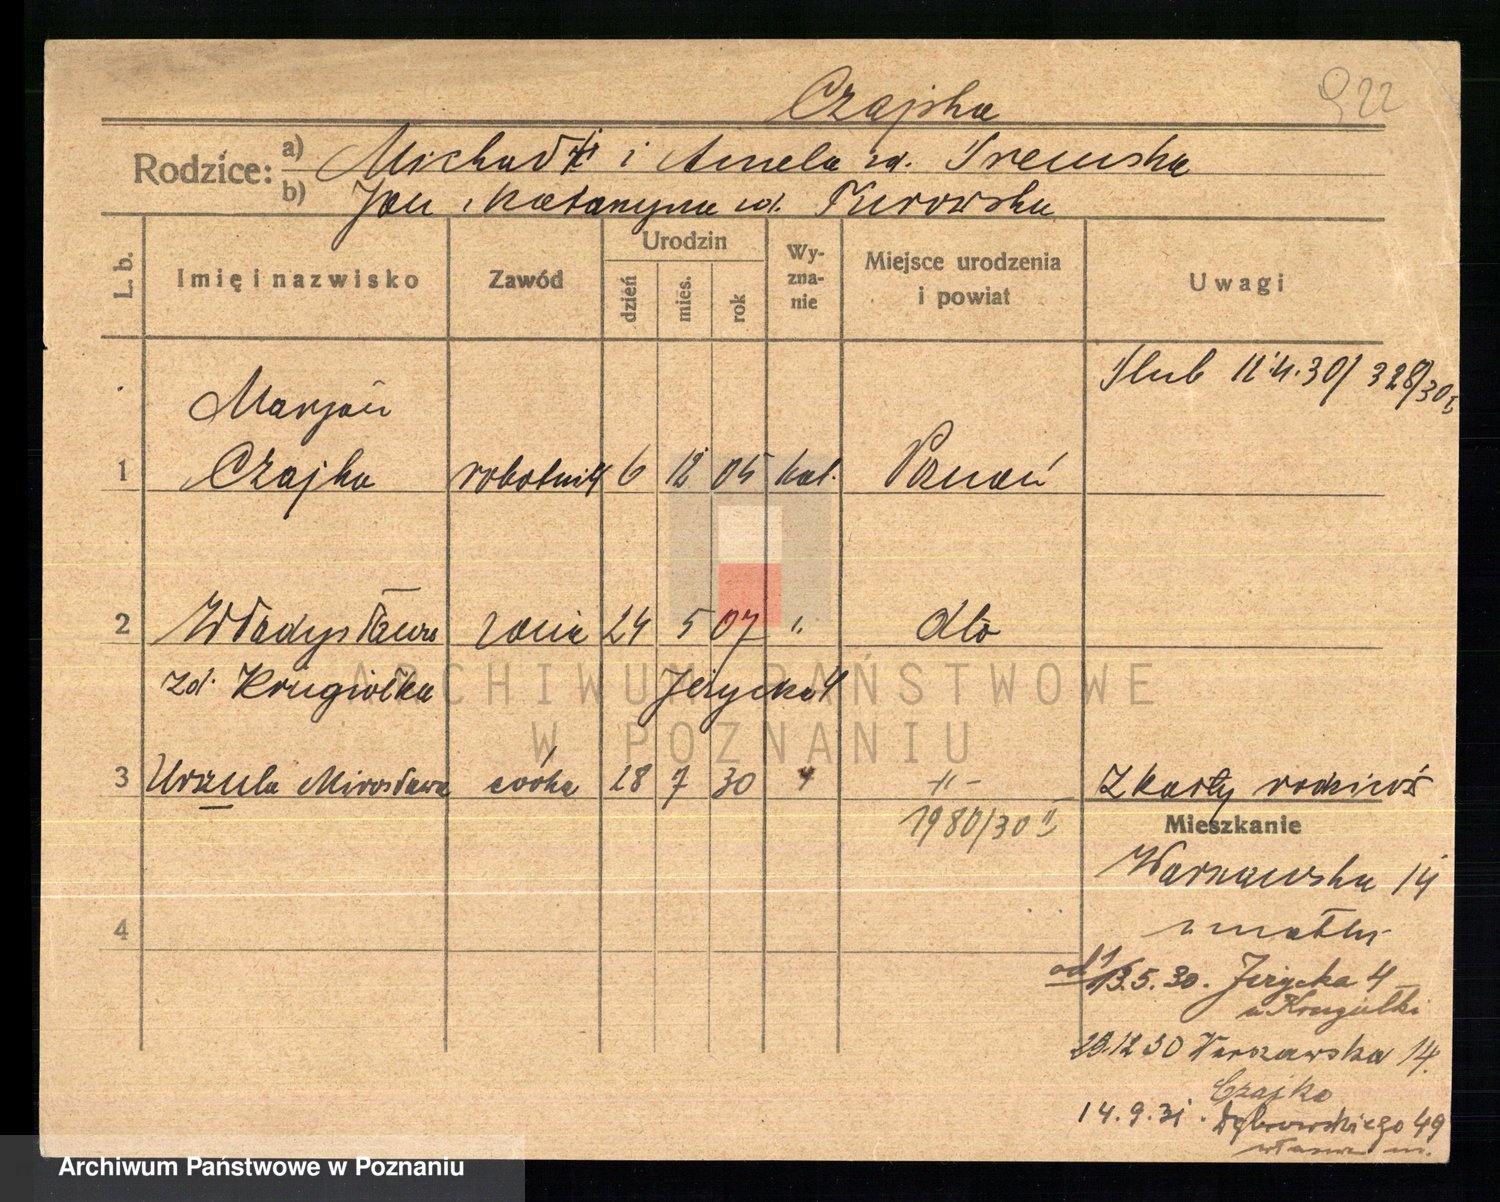 922
Czajka
Rodzice: a) Michał i Amela zd. Śremska
b) Jan i Katarzyna zd. Kurowska
L. b.
Imię i nazwisko
Zawód
Urodzin
dzień
mies.
rok
Wy-
zna-
nie
Miejsce urodzenia
i powiat
Uwagi
Ślub 12.4.30/ 328/30 I
Marjan
1 Czajka robotnik 6 12 05 kat. Poznań
2 Władysława żona 24 5 07 " dto
zd. Krugiołka Jeżycka 4
ARCHIWUM PAŃSTWOWE
W POZNANIU
3 Urszula Mirosława córka 28 7 30 " -"- Z karty rodziców
1980/30 II
Mieszkanie
Warszawska 14
u matki
4
od 13.5.30. Jeżycka 4
u Krugiołki
29.12 30 Warszawska 14.
Czajka
14.9.31. Dąbrowskiego 49
własne m.
Archiwum Państwowe w Poznaniu